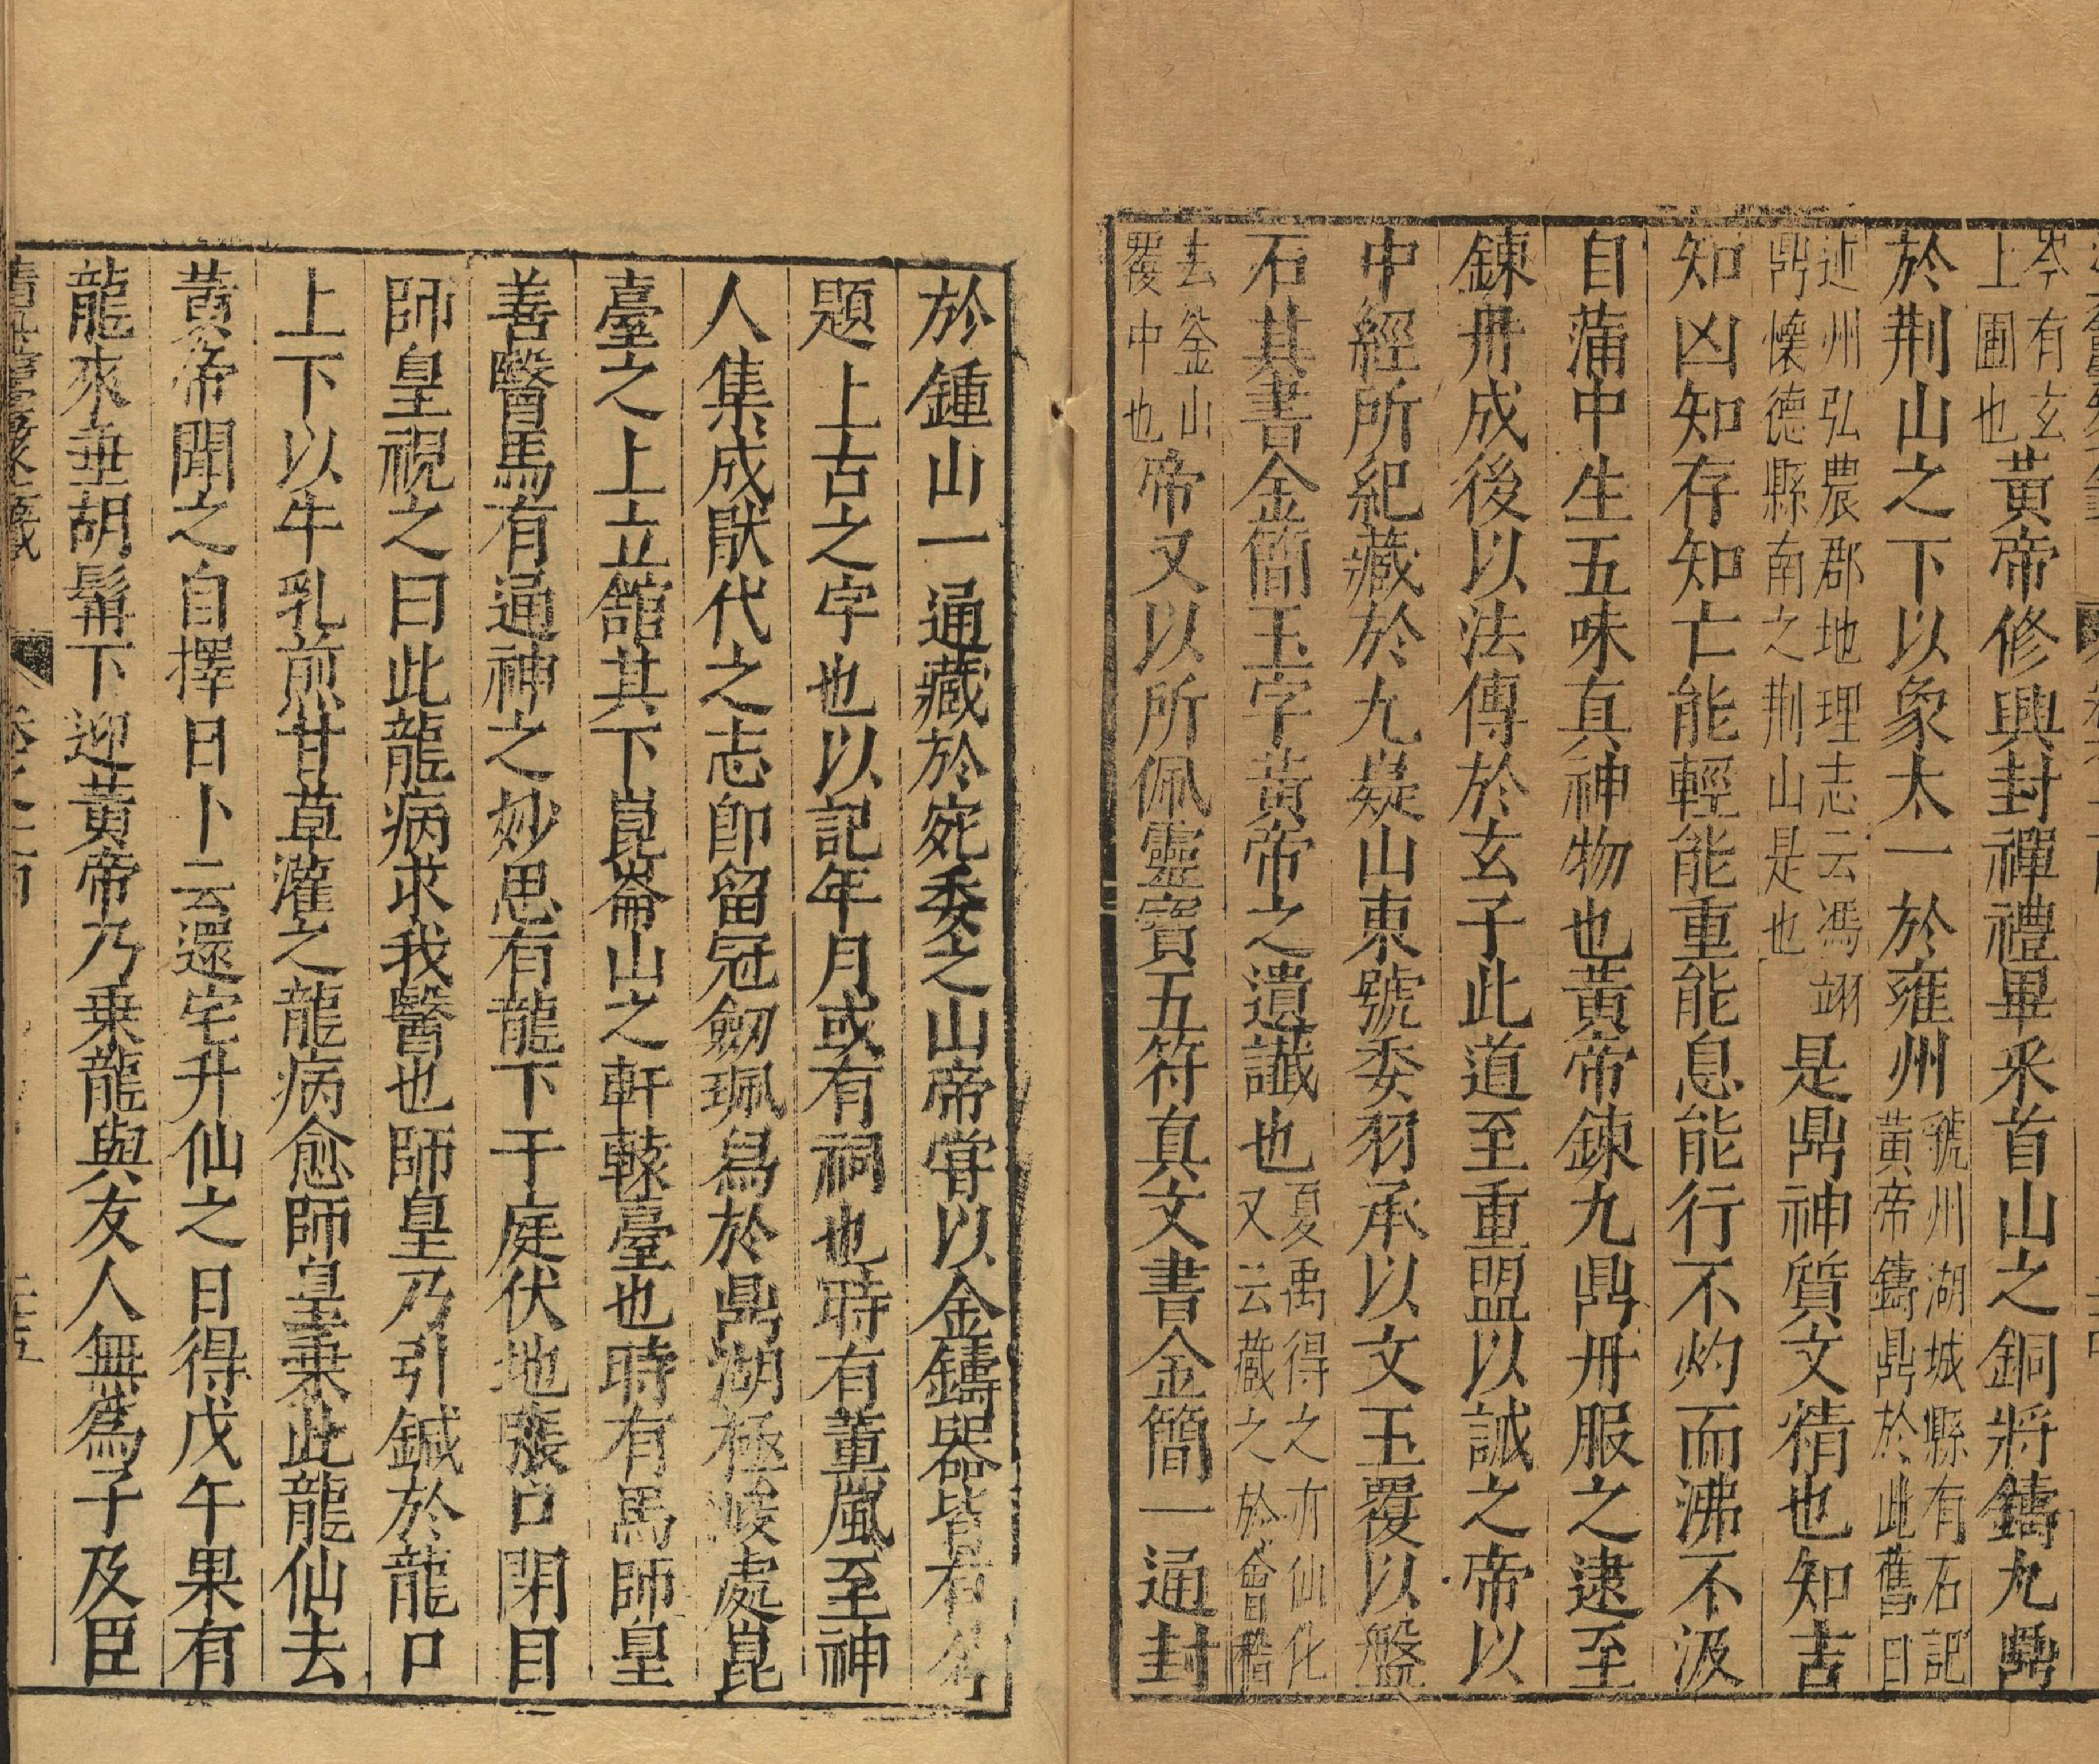 岑有玄
上圃也黃帝修興封禪禮畢采首山之銅將鑄九鼎
於荆山之下以象太一於雍州虢州湖城縣有石記
黃帝鑄鼎於此舊曰
迊州弘農郡地理志云馮翊
鼎懷德縣南之荆山是也是鼎神質文精也知吉
知凶知存知亡能輕能重能息能行不灼而沸不汲
自蒲中生五味真神物也黃帝鍊九鼎丹服之逮至
鍊丹成後以法傳於玄子此道至重盟以誡之帝以
中經所紀藏於九嶷山東號委羽承以文玉覆以盤
石其書金簡玉字黃帝之遺讖也夏禹得之亦仙化
又云藏之於會稽
去釜山
覆中也帝又以所佩靈寶五符真文書金簡一通封
於鍾山一通藏於宛委之山帝嘗以金鑄器皆有名
題上古之字也以記年月或有祠也時有董嵐至神
人集成厭代之志即留冠劒珮舄於鼎湖極峻處崑
臺之上立館其下崑崙山之軒轅臺也時有馬師皇
善醫馬有通神之妙思有龍下于庭伏地張口閉目
師皇視之曰此龍病求我醫也師皇乃引鍼於龍口
上下以牛乳煎甘草灌之龍病愈師皇乗此龍仙去
黃帝聞之自擇日卜云還宅升仙之日得戊午果有
龍來垂胡髯下迎黃帝乃乗龍與友人無爲子及臣